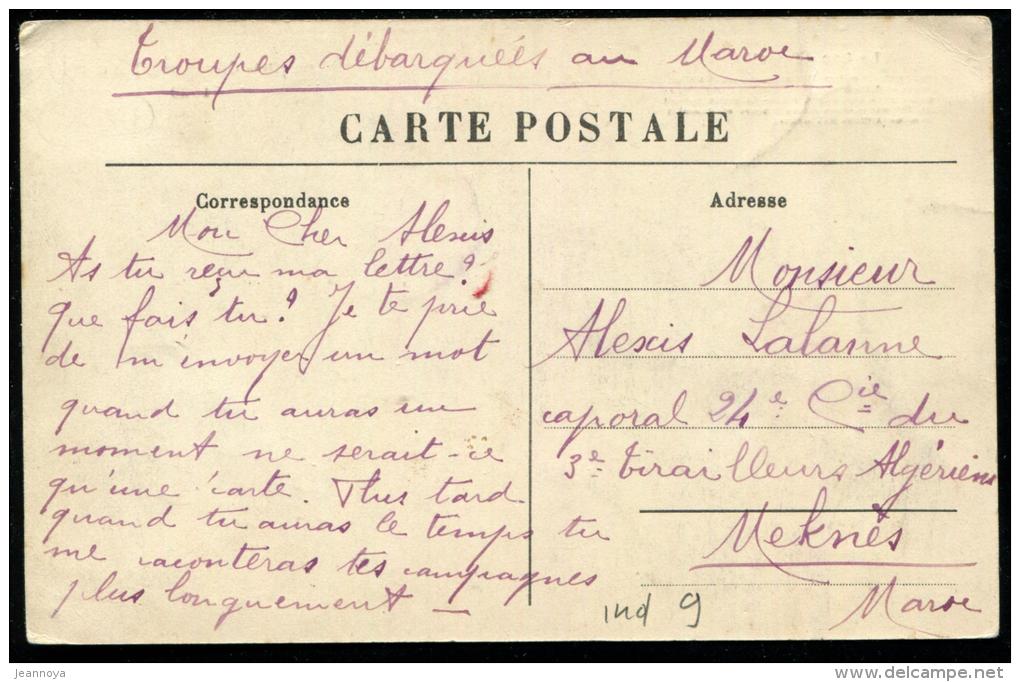 Troupes débarquées au Maroc
CARTE POSTALE
Correspondance
Mon Cher Alexis
As tu reçu ma lettre?
que fais tu? Je te prie
de m'envoyer un mot
quand tu auras un
moment ne serait-ce
qu'une carte. Plus tard
quand tu auras le temps tu
me raconteras tes campagnes
plus longuement —
Adresse
Monsieur
Alexis Lalanne
caporal 24e Cie du
3e tirailleurs Algériens
Meknès
Maroc
ind 9
jeannoya
www.delcampe.net